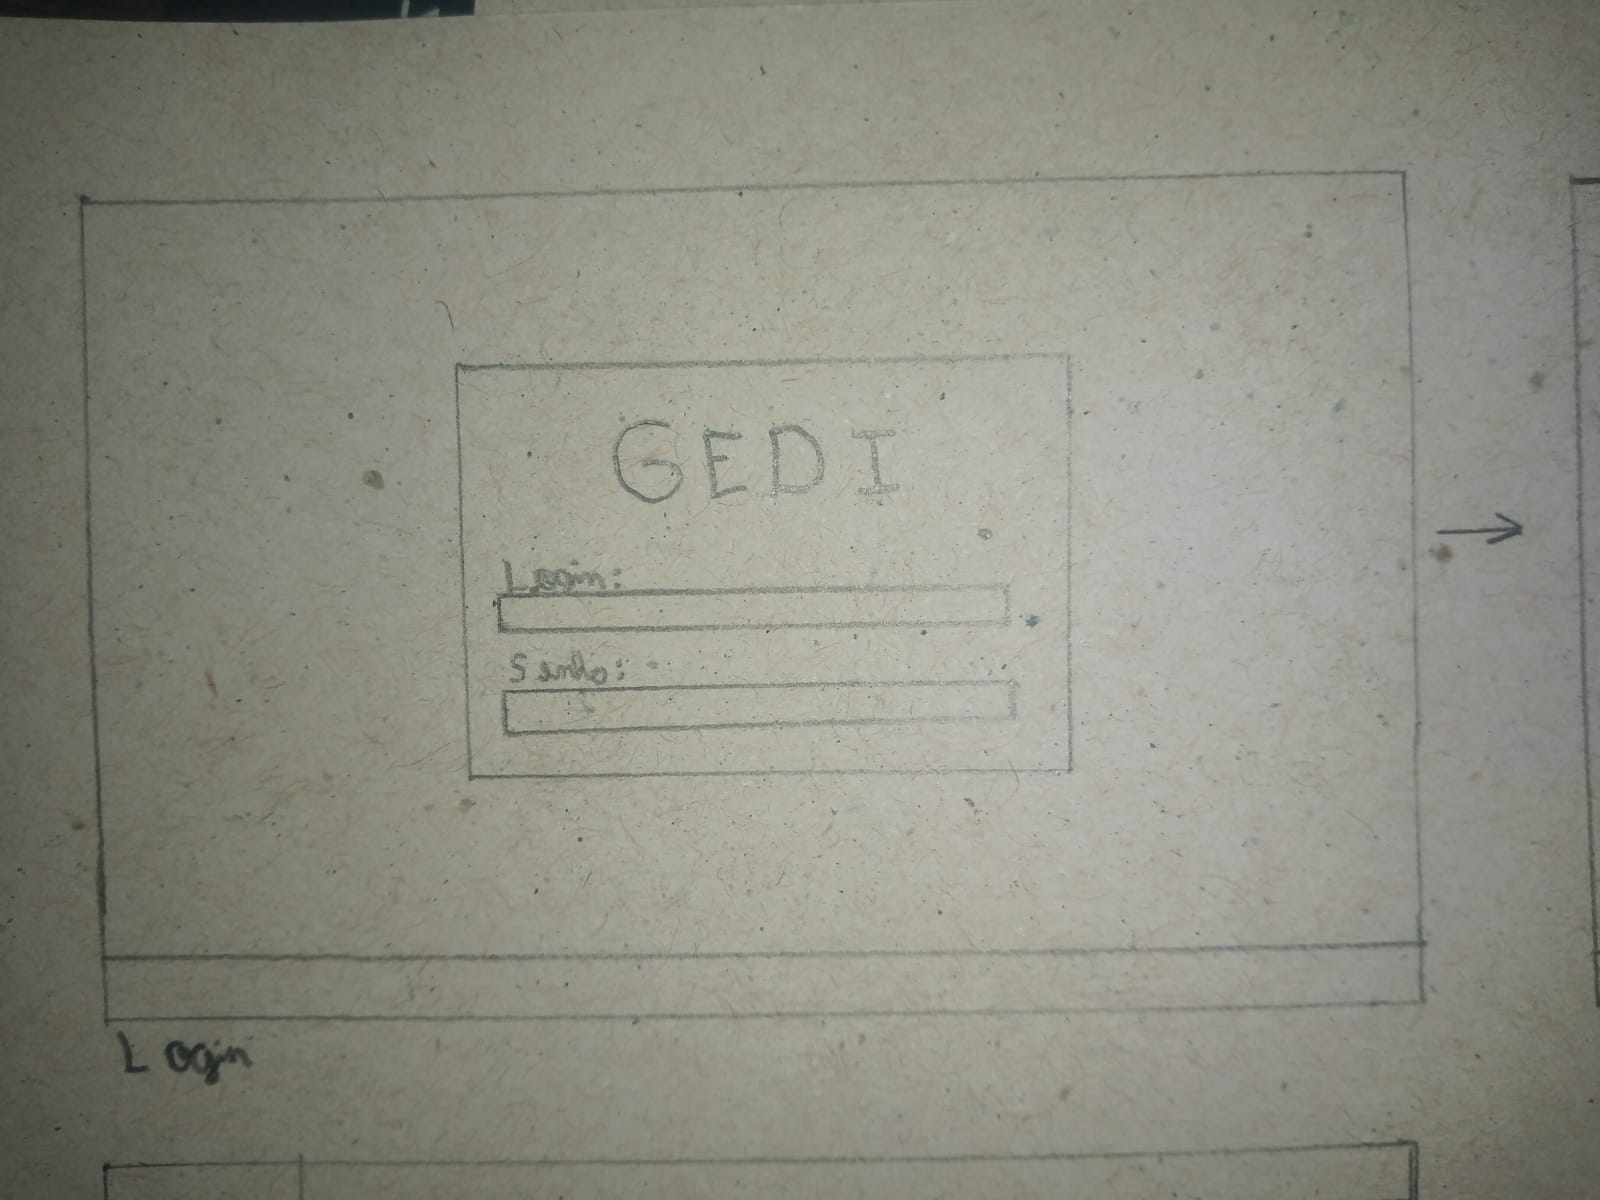 GEDI
Login:
Senha:
Login